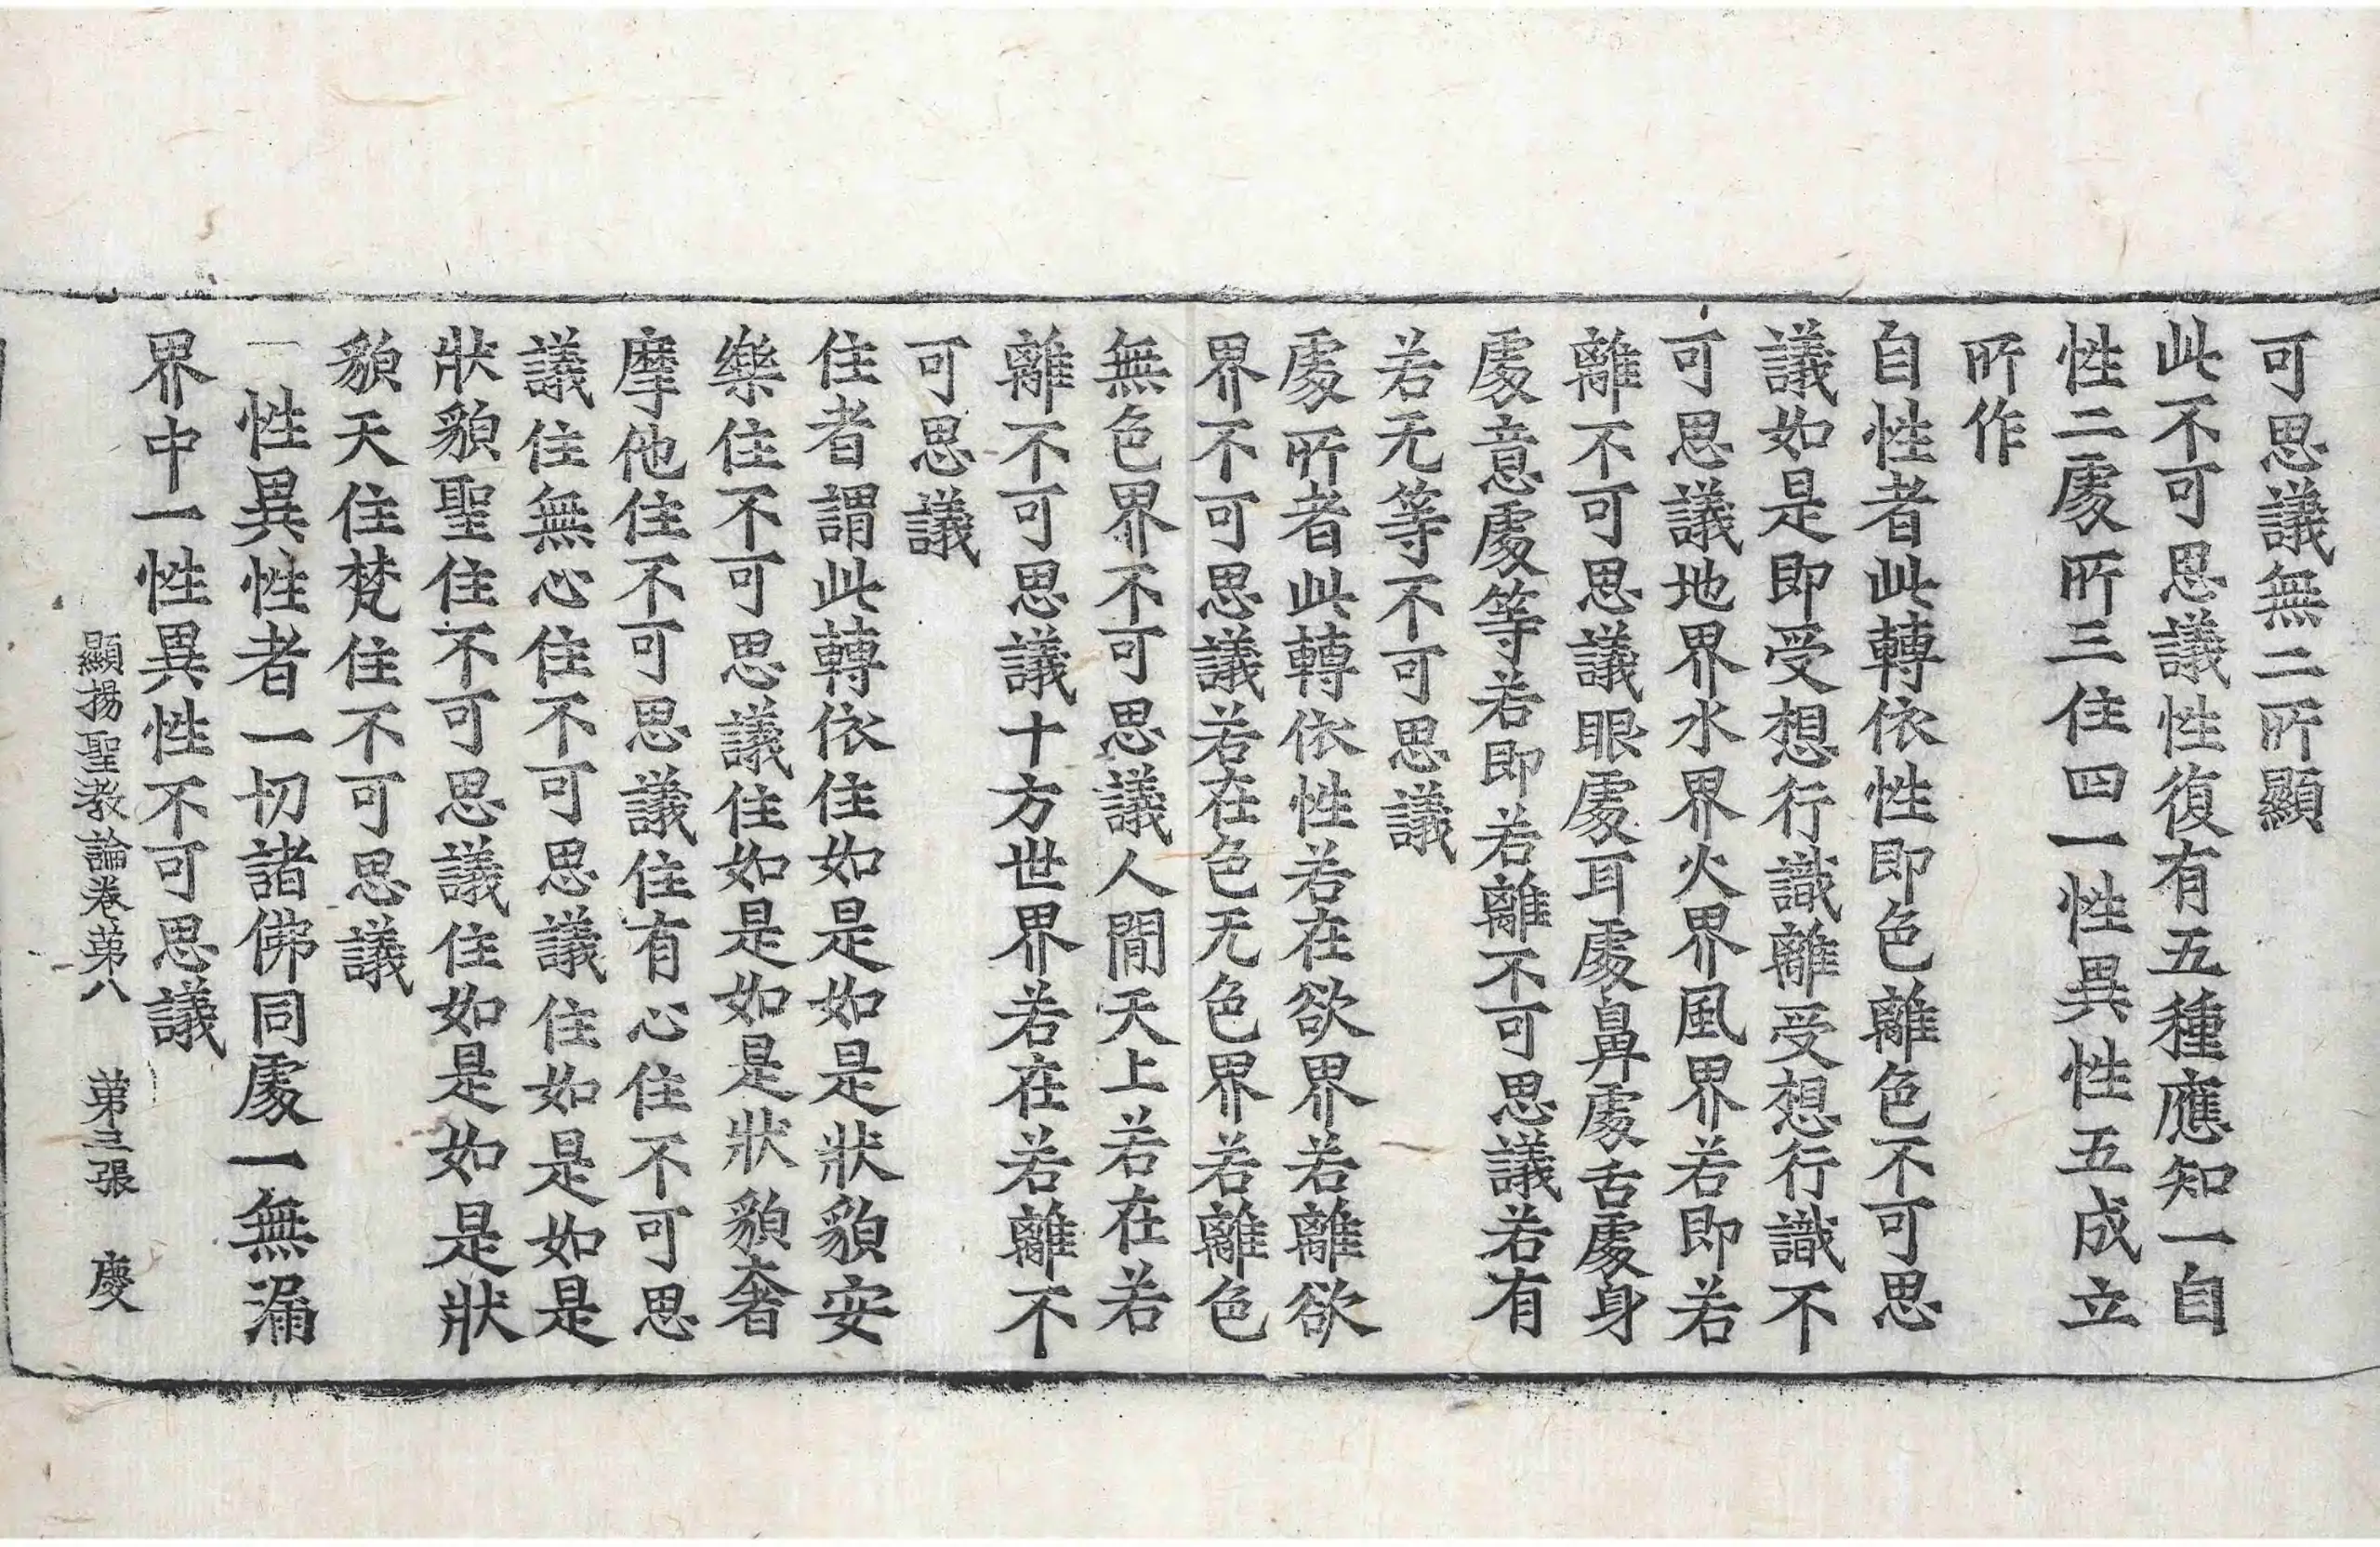 可思議無二所顯
此不可思議性復有五種應知一自
性二處所三住四一性異性五成立
所作
自性者此轉依性即色離色不可思
議如是即受想行識離受想行識不
可思議地界水界火界風界若即若
離不可思議眼處耳處鼻處舌處身
處意處等若即若離不可思議若有
若无等不可思議
處所者此轉依性若在欲界若離欲
界不可思議若在色无色界若離色
無色界不可思議人間天上若在若
離不可思議十方世界若在若離不
可思議
住者謂此轉依住如是如是狀貌安
樂住不可思議住如是如是狀貌奢
摩他住不可思議住有心住不可思
議住無心住不可思議住如是如是
狀貌聖住不可思議住如是如是狀
貌天住梵住不可思議
一性異性者一切諸佛同處一無漏
界中一性異性不可思議
顯揚聖教論卷第八 第三張 慶